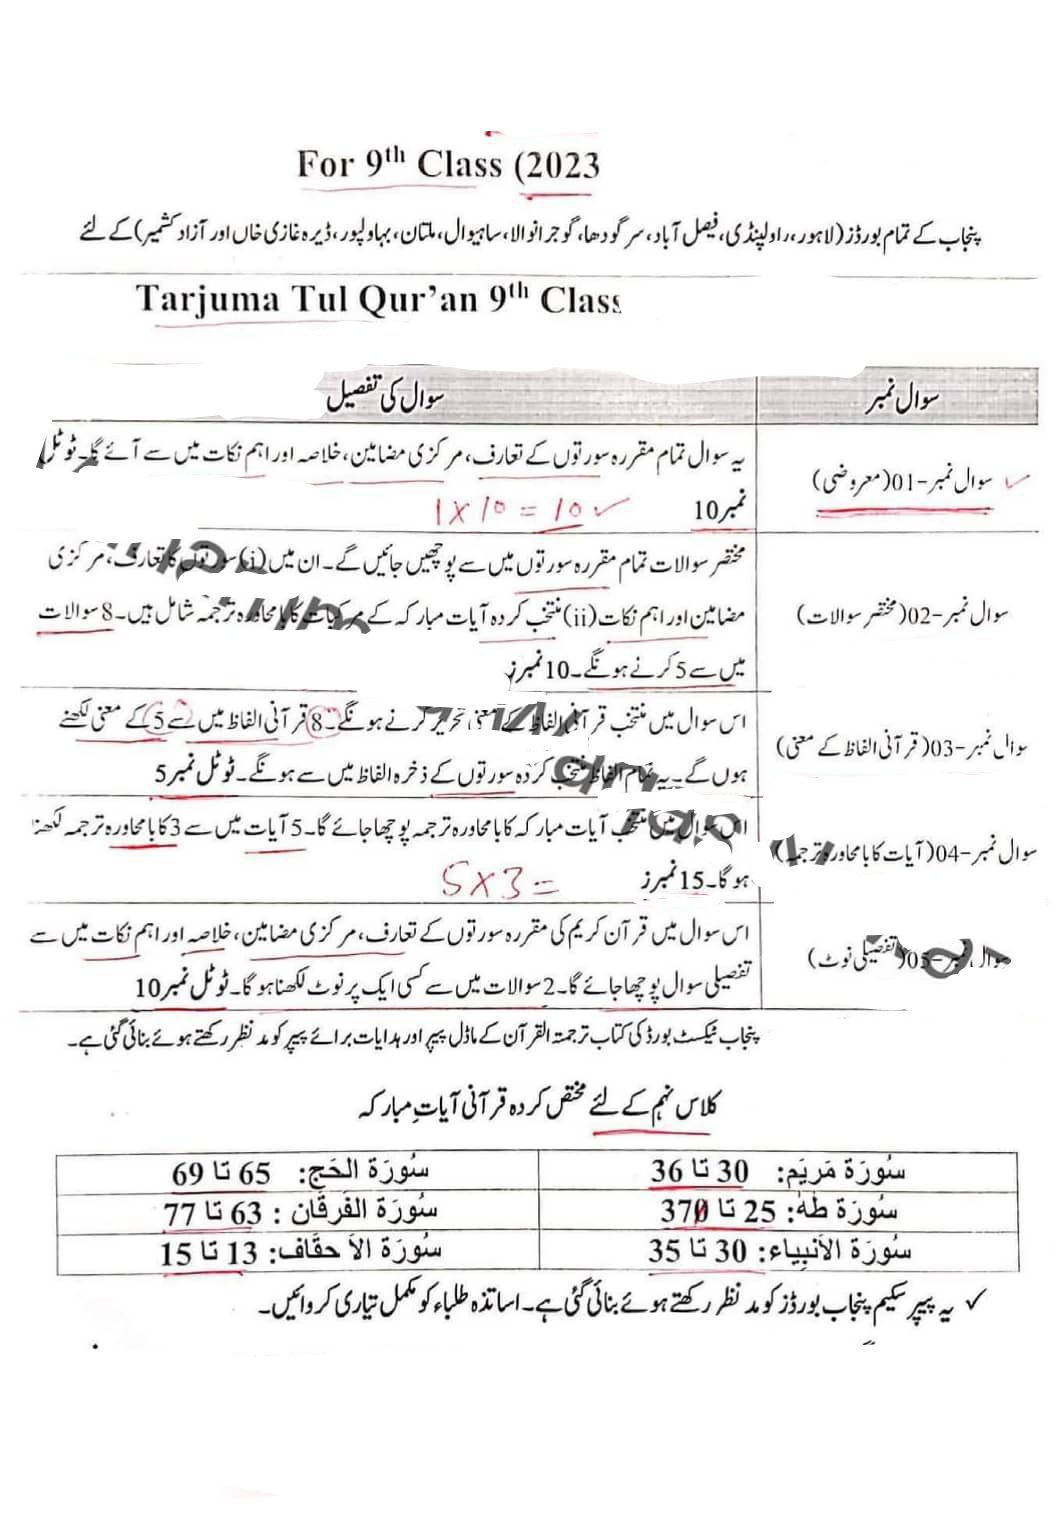 For 9th Class (2023
پنجاب کے تمام بورڈز (لاہور، راولپنڈی، فیصل آباد، سرگودھا، گوجرانوالا، ساہیوال، ملتان، بہاولپور، ڈیرہ غازی خاں اور آزاد کشمیر) کے لئے
Tarjuma Tul Qur’an 9th Class
سوال نمبر سوال کی تفصیل
سوال نمبر-01(معروضی)
یہ سوال تمام مقررہ سورتوں کے تعارف، مرکزی مضامین، خلاصہ اور اہم نکات میں سے آئے گا۔ ٹوٹل
نمبر 10 1 X 10 = 10 ✓
سوال نمبر-02(مختصر سوالات)
مختصر سوالات تمام مقررہ سورتوں میں سے پوچھیں جائیں گے۔ ان میں (i) سورتوں کا تعارف، مرکزی
مضامین اور اہم نکات (ii) منتخب کردہ آیات مبارکہ کے مرکبات کا بامحاورہ ترجمہ شامل ہیں۔ 8 سوالات
میں سے 5 کرنے ہونگے۔ 10 نمبرز
سوال نمبر-03(قرآنی الفاظ کے معنی)
اس سوال میں منتخب قرآنی الفاظ کے معنی تحریر کرنے ہونگے۔ 8 قرآنی الفاظ میں سے 5 کے معنی لکھنے
ہوں گے۔ یہ تمام الفاظ منتخب کردہ سورتوں کے ذخیرہ الفاظ میں سے ہونگے۔ ٹوٹل نمبر 5
سوال نمبر-04(آیات کا بامحاورہ ترجمہ)
اس سوال میں منتخب آیات مبارکہ کا بامحاورہ ترجمہ پوچھا جائے گا۔ 5 آیات میں سے 3 کا بامحاورہ ترجمہ لکھنا
ہو گا۔ 15 نمبرز 5 X 3 =
سوال نمبر-05(تفصیلی نوٹ)
اس سوال میں قرآن کریم کی مقررہ سورتوں کے تعارف، مرکزی مضامین، خلاصہ اور اہم نکات میں سے
تفصیلی سوال پوچھا جائے گا۔ 2 سوالات میں سے کسی ایک پر نوٹ لکھنا ہو گا۔ ٹوٹل نمبر 10
پنجاب ٹیکسٹ بورڈ کی کتاب ترجمۃ القرآن کے ماڈل پیپر اور ہدایات برائے پیپر کو مد نظر رکھتے ہوئے بنائی گئی ہے۔
کلاس نہم کے لئے مختص کردہ قرآنی آیاتِ مبارکہ
سُورَۃ مَریَم: 30 تا 36 سُورَۃ الحَج: 65 تا 69
سُورَۃ طٰہٰ: 25 تا 370 سُورَۃ الفُرقَان : 63 تا 77
سُورَۃ الأنبِیاء: 30 تا 35 سُورَۃ الاَ حقَاف: 13 تا 15
✓ یہ پیپر سکیم پنجاب بورڈز کو مد نظر رکھتے ہوئے بنائی گئی ہے۔ اساتذہ طلباء کو مکمل تیاری کروائیں۔